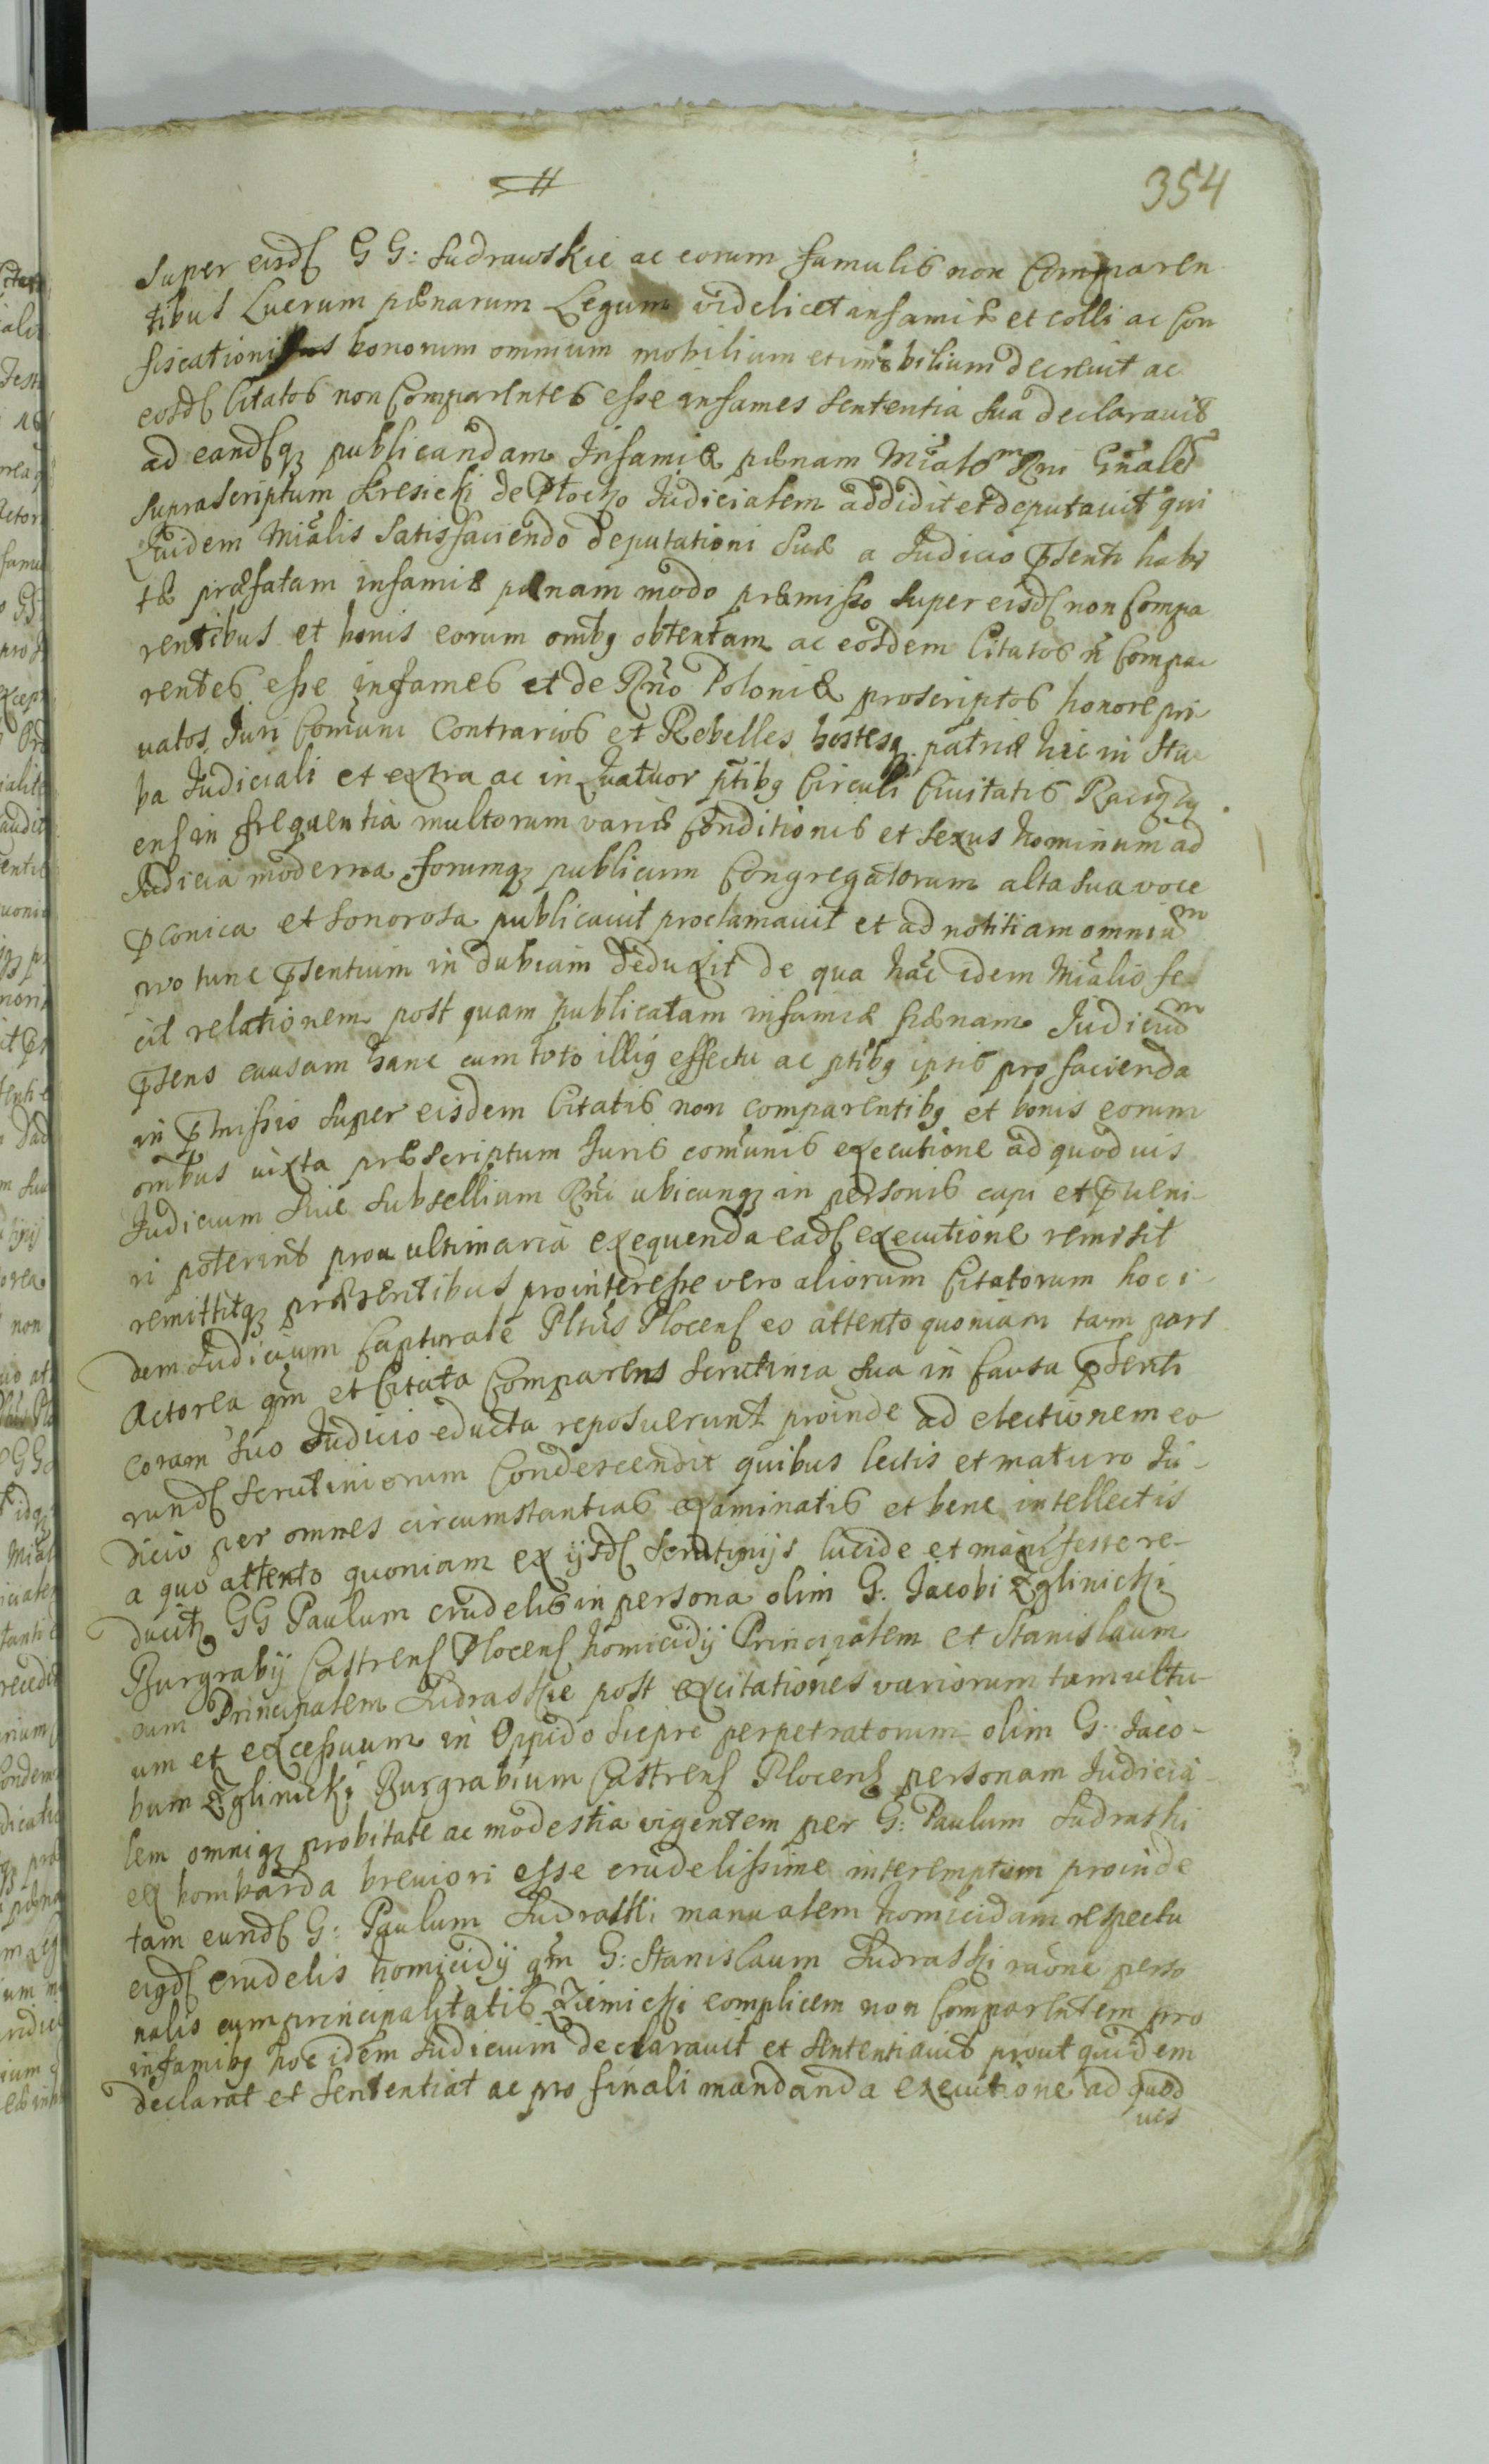 354
Super eisd G G: Sudrawskie ac eorum famulis non Comparen-
tibus Luerum pænarum Legum videlicet infamiæ et colli ac Con
fiscationis bonorum omnium mobilium et imobilium decrevit ac
eosd Citatos non Comparentes esse infames Sententia Sua declaravit
ad eandq publicandam Infamiæ pænam Mialem Rni Gnalem
Suprascriptum Kresicki de Plocko Judicialem addidit et deputavit qui
Quidem Mialis Satisfaciendo deputationi Suæ a Judicio pñsenti habi
tæ præfatam infamiæ pænam modo præmisso Super eisd non Compa
rentibus et bonis eorum omibq obtentam ac eosdem Citatos ñ Compa
rentes esse infames et de Rño Poloniæ proscriptos honore pri
vatos Juri Comuni Contrarios et Rebelles hostesq patriæ hic in Stu
ba Judiciali et extra ac in Quatuor ptibq Circuli Civitatis Raciąż
ens in frequentia multorum variæ Conditionis et Sexus hominum ad
Judicia moderna forumq publicum Congregatorum alta Sua voce
pconica et Sonorosa publicavit proclamavit et ad notitiam omnium
pro tunc pñsentium in dubiam deduxit de qua hac idem Mialis fe
cit relationem post quam publicatam infamiæ pænam Judicium
pñsens causam hanc cum toto illiq effectu ac ptibq ipsis pro facienda
in pmissis Super eisdem Citatis non comparentibq et bonis eorum
omibus iuxta præscriptum Juris comunis executione ad quodvis
Judicium Sive Subsellium Rñi ubicunq in personis capi et pveni-
ri poterint pro ultimaria exequenda ead executione remisit
remittitq præsentibus pro interesse vero aliorum Citatorum hoc i-
dem Judicium Capturale Pltus Plocens eo attento quoniam tam pars
Actorea qm et Citata Comparens Scrutinia Sua in Causa pñsenti
coram Suo Judicio educta reposuerunt proinde ad electionem eo
rund Scrutiniorum Condescendit quibus lectis et maturo Ju-
dicio per omnes circumstantias examinatis et bene intellectis
a quo attento quoniam ex ijsd Scrutinijs lucide et manifeste re-
ducit GG Paulum crudelis in persona olim G: Jacobi Zglinicki
Burgrabij Castrens Plocens homicidij Principalem et Stanislaum
cum Principalem Sudraskie post excitationes variorum tumultu-
um et excessuum in Oppido Siepre perpetratorum olim G: Jaco-
bum Zglinicki Burgrabium Castrens Plocens personam Judicia-
lem omniq probitate ac modestia vigentem per G: Paulum Sudraski
ex bombarda breviori esse crudelissime interemptum proinde
tam eund G: Paulum Sudraski manualem homicidam respectu
eiqd crudelis homicidij qm G: Stanislaum Sudraski raone perso
nalis cum principalitatis Ziemicki complicem non Comparentem pro
infamibq hoc idem Judicium declaravit et Sententiavit prout quidem
declarat et Sententiat ac pro finali mandanda executione ad quod
vis